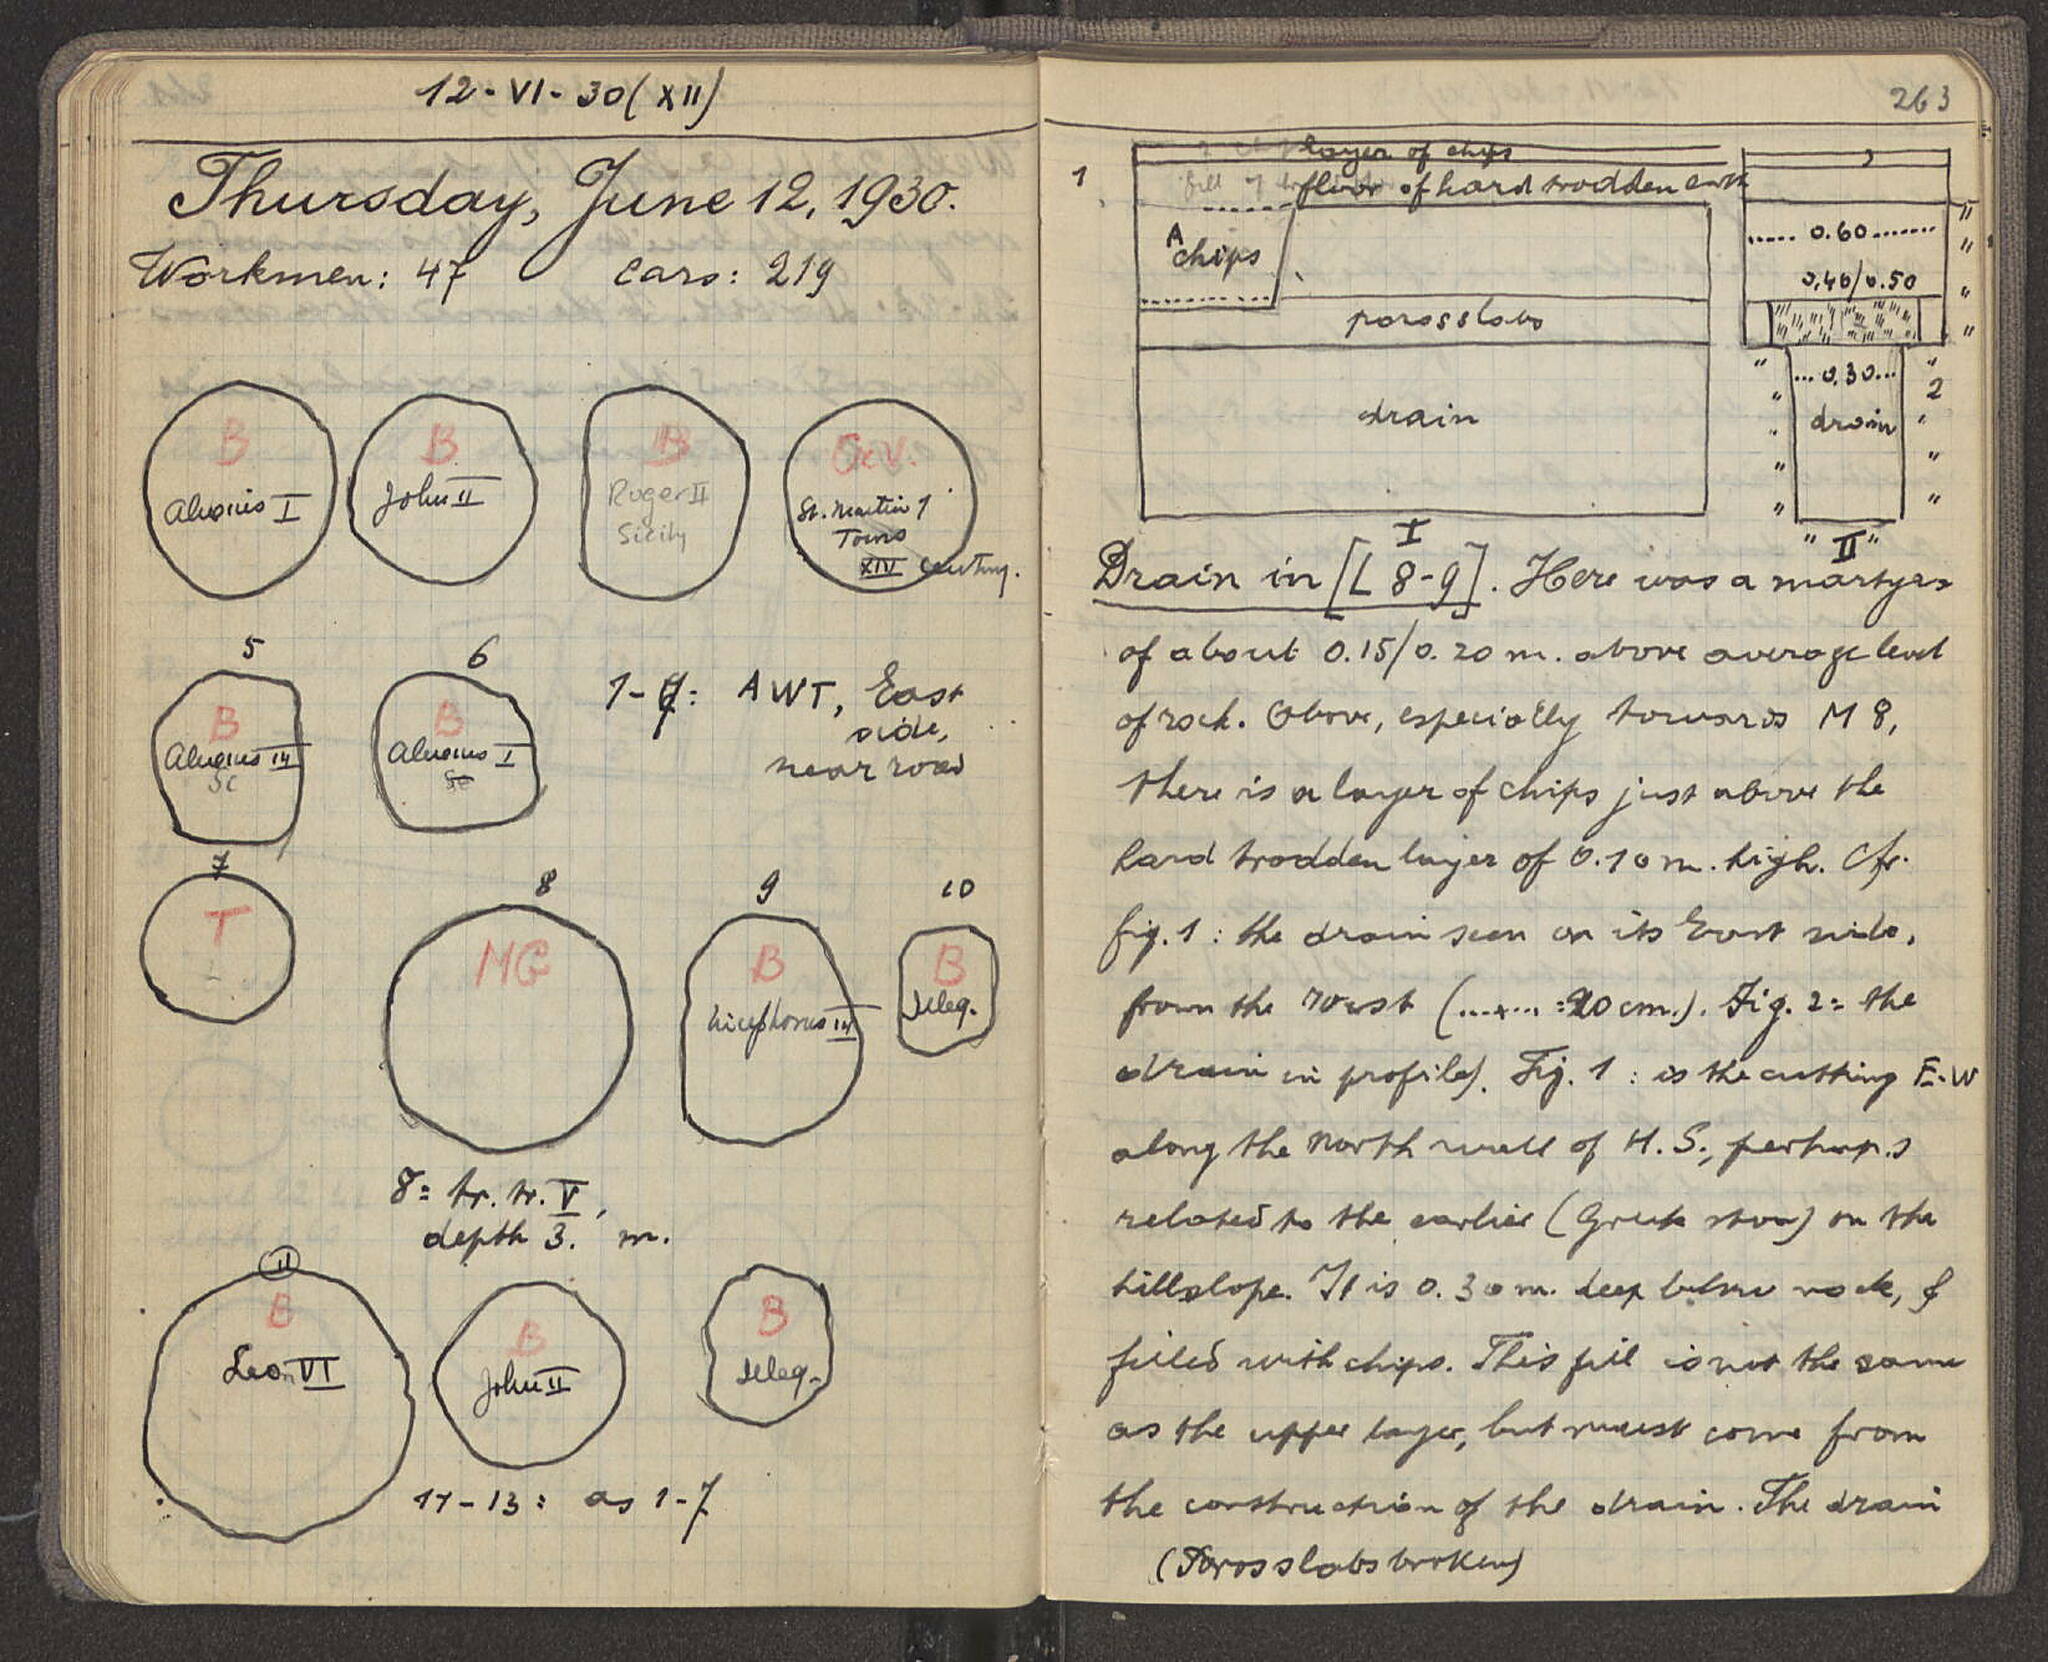 12-VI-30 (XII)
Thursday, June 12, 1930.
Workmen: 47 Cars: 219
B
Alexius I
B
John II
B
Roger II
Sicily
St. Martin
Tours
XIV century.
5
B
Alexius III
6
B
Alexius I
1-7: AWT, East
side,
near road
7
T
8
MG
9
B
Nicephorus III
10
B
illeg.
8= tr. tr. V,
depth 3. m.
11
B
Leon VI
B
John II
B
illeg.
11-13: as 1-7
263
1
layer of chips
floor of hard trodden earth
A
chips
poros slabs
drain
I
0.60
0,40/0.50
0.30
2
drain
II
Drain in [L 8-9]. Here was a
of about 0.15/0.20 m. above average level
of rock. Above, especially towards M 8,
there is a layer of chips just above the
hard trodden layer of 0.10 m. high. Cfr.
fig. 1: the drain seen on its East side,
from the West (......:20 cm.). Fig. 2= the
drain in profile). Fig. 1: is the cutting E-W
along the North wall of H.S., perhaps
related to the earlier (Greek stoa) on the
hillslope. It is 0.30 m. deep below rock, &
filled with chips. This fill is not the same
as the upper layer, but must come from
the construction of the drain. The drain
(Poros slabs broken)